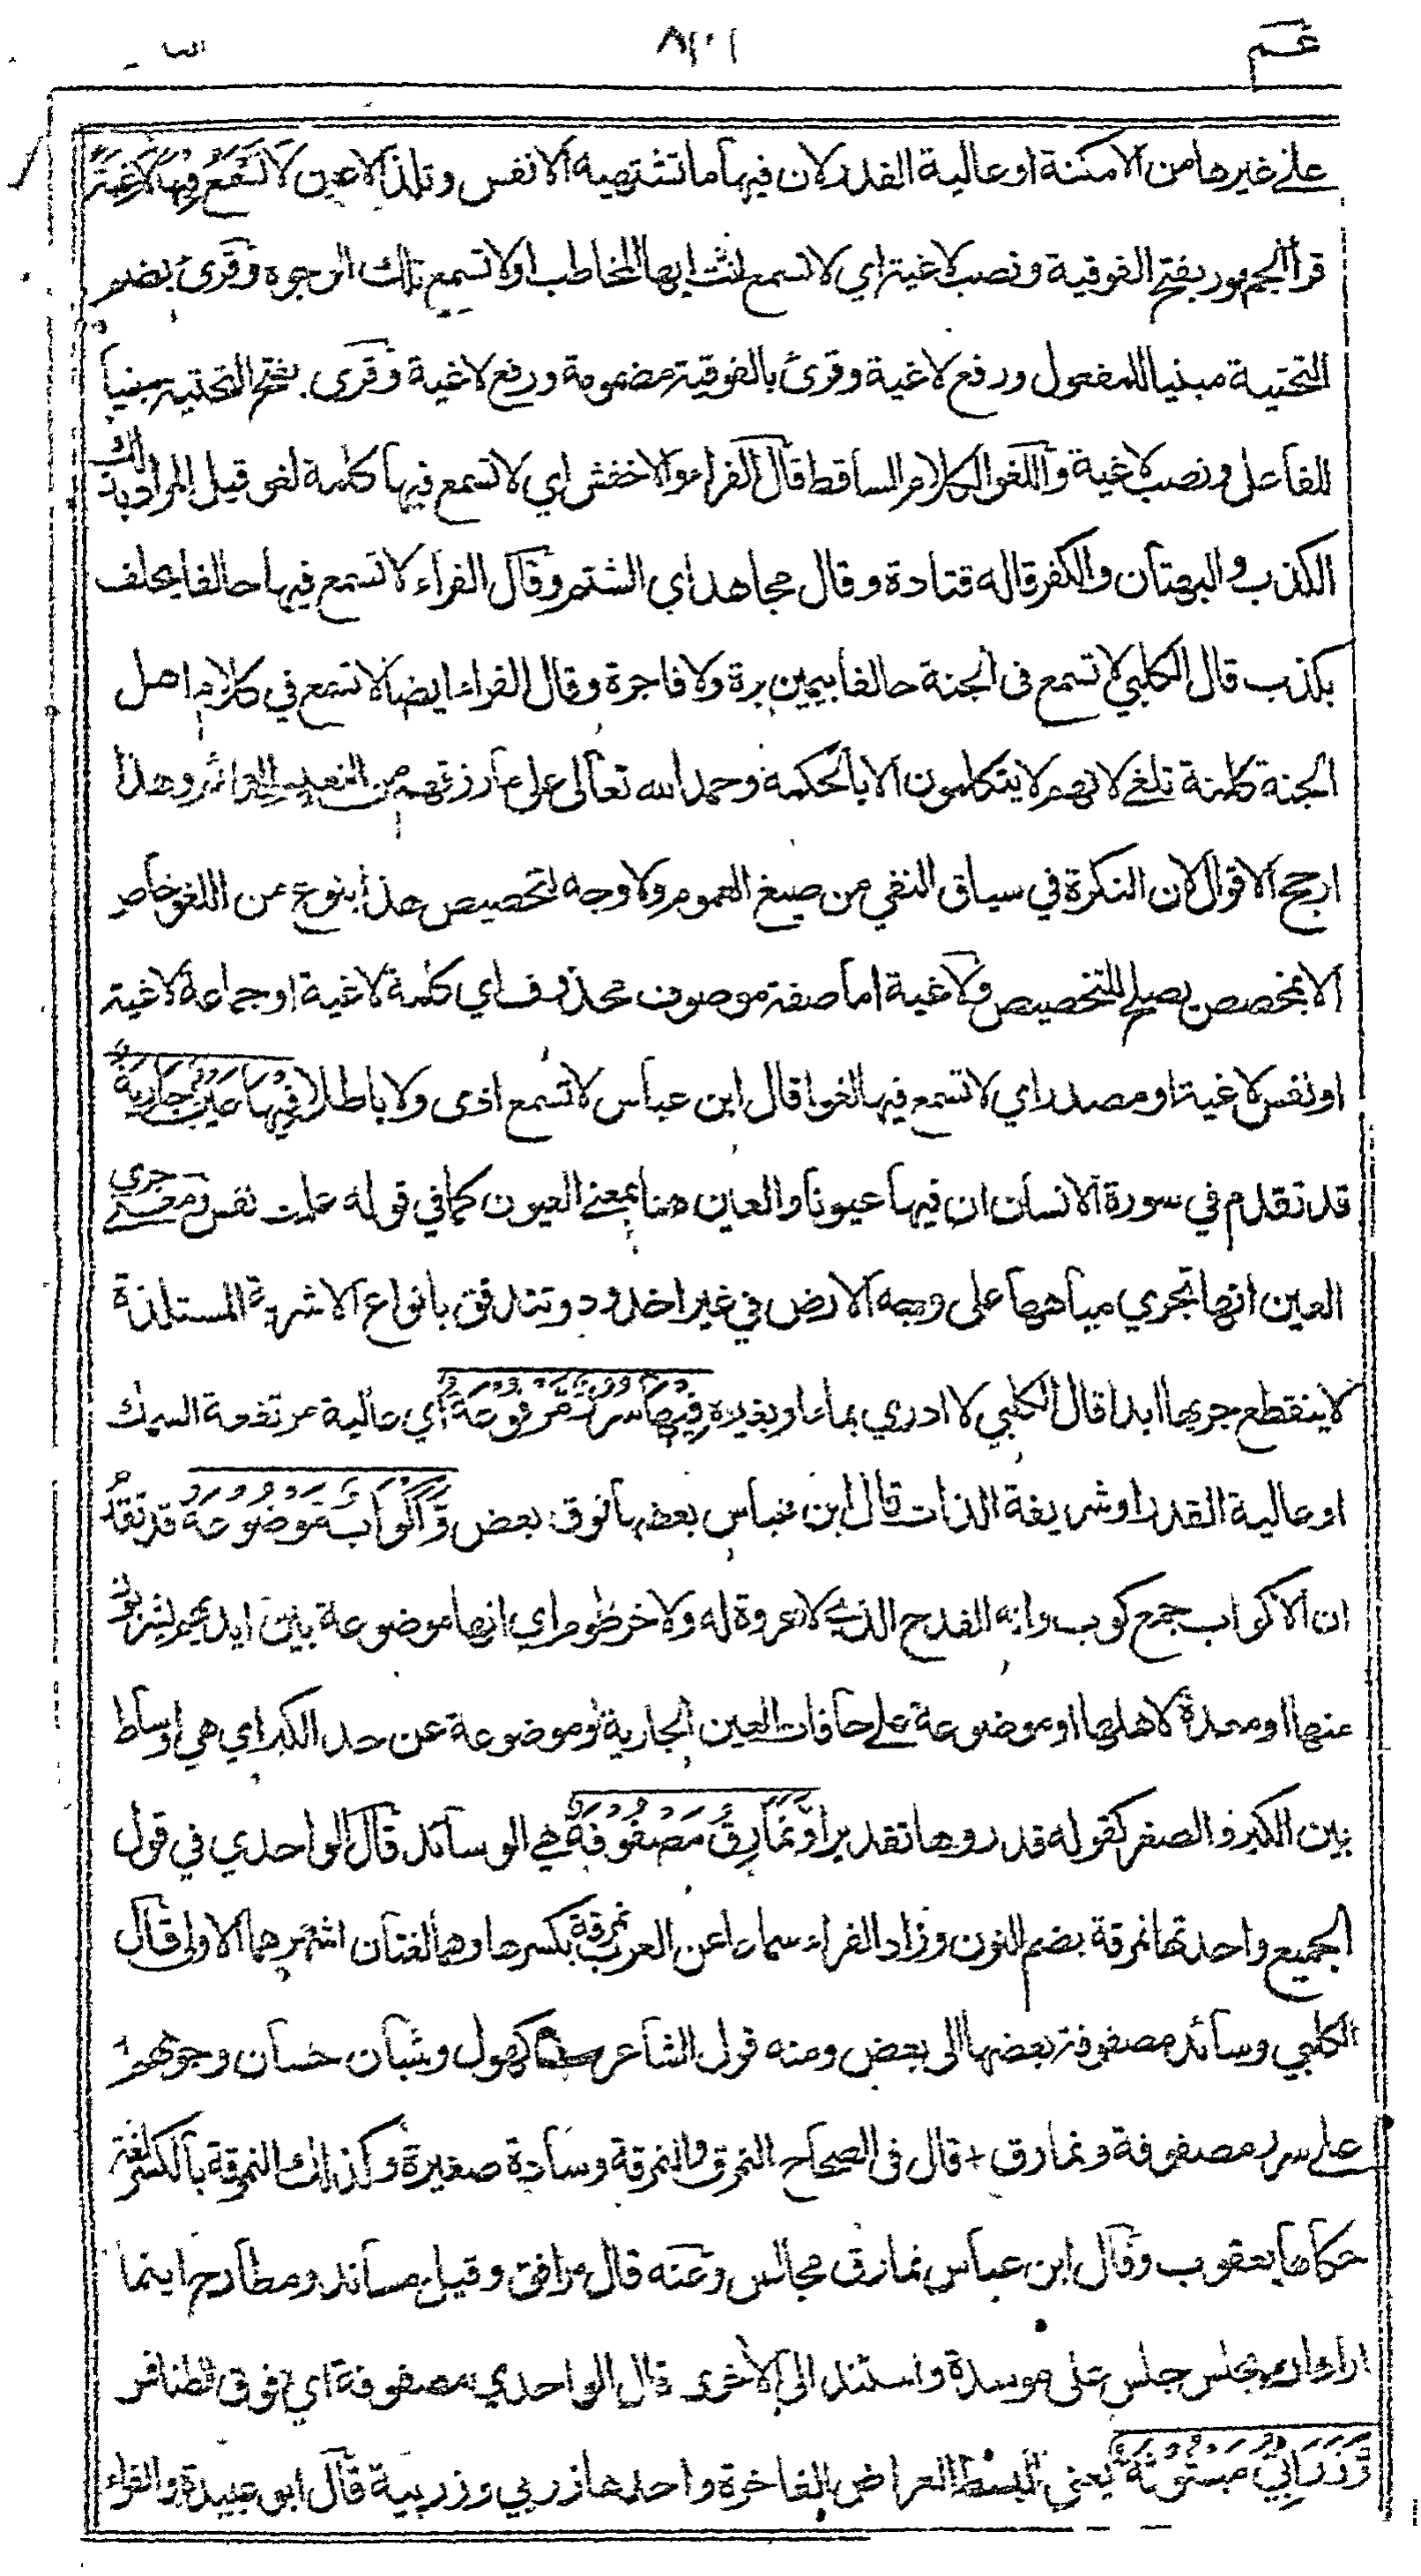 عم
على غيرها من الامكنة او عالية القدر لان فيها ما تشتهيه الانفس وتلذ الاعين لَا تَسْمَعُ فِيهَا لَاغِيَةً
قرأ الجمهور بفتح الفوقية ونصب لاغية اي لا تسمع انت ايها المخاطب او لا تسمع تلك الوجوه وقرئ بضم
التحتية مبنيا للمفعول ورفع لاغية وقرئ بالفوقية مضمومة ورفع لاغية وقرئ بفتح التحتية مبنيا
للفاعل ونصب لاغية واللغو الكلام الساقط قال الفراء والاخفش اي لا تسمع فيها كلمة لغو قيل المراد بذلك
الكذب والبهتان والكفر قاله قتادة وقال مجاهد اي الشتم وقال الفراء لا تسمع فيها حالفا يحلف
بكذب قال الكلبي لا تسمع في الجنة حالفا بيمين برة ولا فاجرة وقال الفراء ايضا لا تسمع في كلام اهل
الجنة كلمة تلغى لانهم لا يتكلمون الا بالحكمة وحمد الله تعالى على ما رزقهم من النعيم الدائم وهذا
ارجح الاقوال لان النكرة في سياق النفي من صيغ العموم ولا وجه لتخصيص هذا بنوع من اللغو خاص
الا بمخصص يصلح للتخصيص ولاغية اما صفة موصوف محذوف اي كلمة لاغية او جماعة لاغية
او نفس لاغية او مصدر اي لا تسمع فيها لغوا قال ابن عباس لا تسمع اذى ولا باطلا فِيهَا عَيْنٌ جَارِيَةٌ
قد تقدم في سورة الانسان ان فيها عيونا والعين هنا بمعنى العيون كما في قوله علمت نفس ومعنى جري
العين انها تجري مياهها على وجه الارض في غير اخدود وتتدفق بانواع الاشربة المستلذة
لا ينقطع جريها ابدا قال الكلبي لا ادري بماء او بغيره فِيهَا سُرُرٌ مَرْفُوعَةٌ اي عالية مرتفعة السمك
او عالية القدر او شريفة الذات قال ابن عباس بعضها فوق بعض وَأَكْوَابٌ مَوْضُوعَةٌ قد تقدم
ان الاكواب جمع كوب وانه القدح الذي لا عروة له ولا خرطوم اي انها موضوعة بين ايديهم ليشربوا
منها او معدة لاهلها او موضوعة على حافات العين الجارية او موضوعة عن حد الكبر اي هي اوساط
بين الكبر والصغر كقوله قدروها تقديرا وَنَمَارِقُ مَصْفُوفَةٌ هي الوسائد قال الواحدي في قول
الجميع واحدتها نمرقة بضم النون وزاد الفراء سماعا عن العرب نمرقة بكسرها وهما لغتان اشهرهما الاولى قال
الكلبي وسائد مصفوفة بعضها الى بعض ومنه قول الشاعر كهول وشبان حسان وجوههم
على سرر مصفوفة ونمارق + قال في الصحاح النمرق والنمرقة وسادة صغيرة وكذلك النمرقة بالكسر لغة
حكاها يعقوب وقال ابن عباس نمارق مجالس وعنه قال مرافق وقيل مساند ومطارح اينما
اراد ان يجلس جلس على موسدة واستند الى الاخرى قال الواحدي مصفوفة اي فوق الطنافس
وَزَرَابِيُّ مَبْثُوثَةٌ يعني البسط العراض الفاخرة واحدها زربي وزربية قال ابو عبيدة والفراء